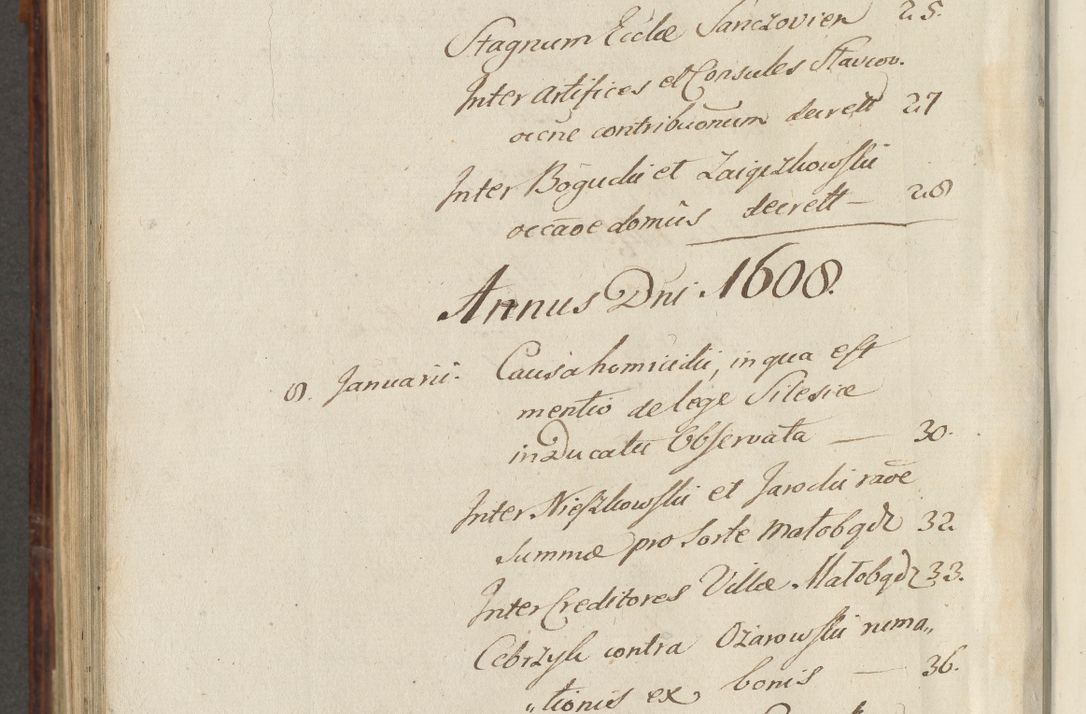 Stagnum Eccłae Sanczovien 25.
Inter Artifices et Consules Slavcov.
occne contribuonum decrett 27
Inter Bogucki et Zaigrzkowski
occaoe domus decrett — 28
Annus Dni 1608.
8. Januarii. Causa homicidii, in qua est
mentio de lege Silesiae
in Ducatu Observata — 30.
Inter Nieszkowski et Jarocki raoe
summae pro sorte Małobądz 32.
Inter Creditores Villae Małobądz 33.
Cebrzyk contra Ożarowski ruma„
„tionis ex bonis — 36.